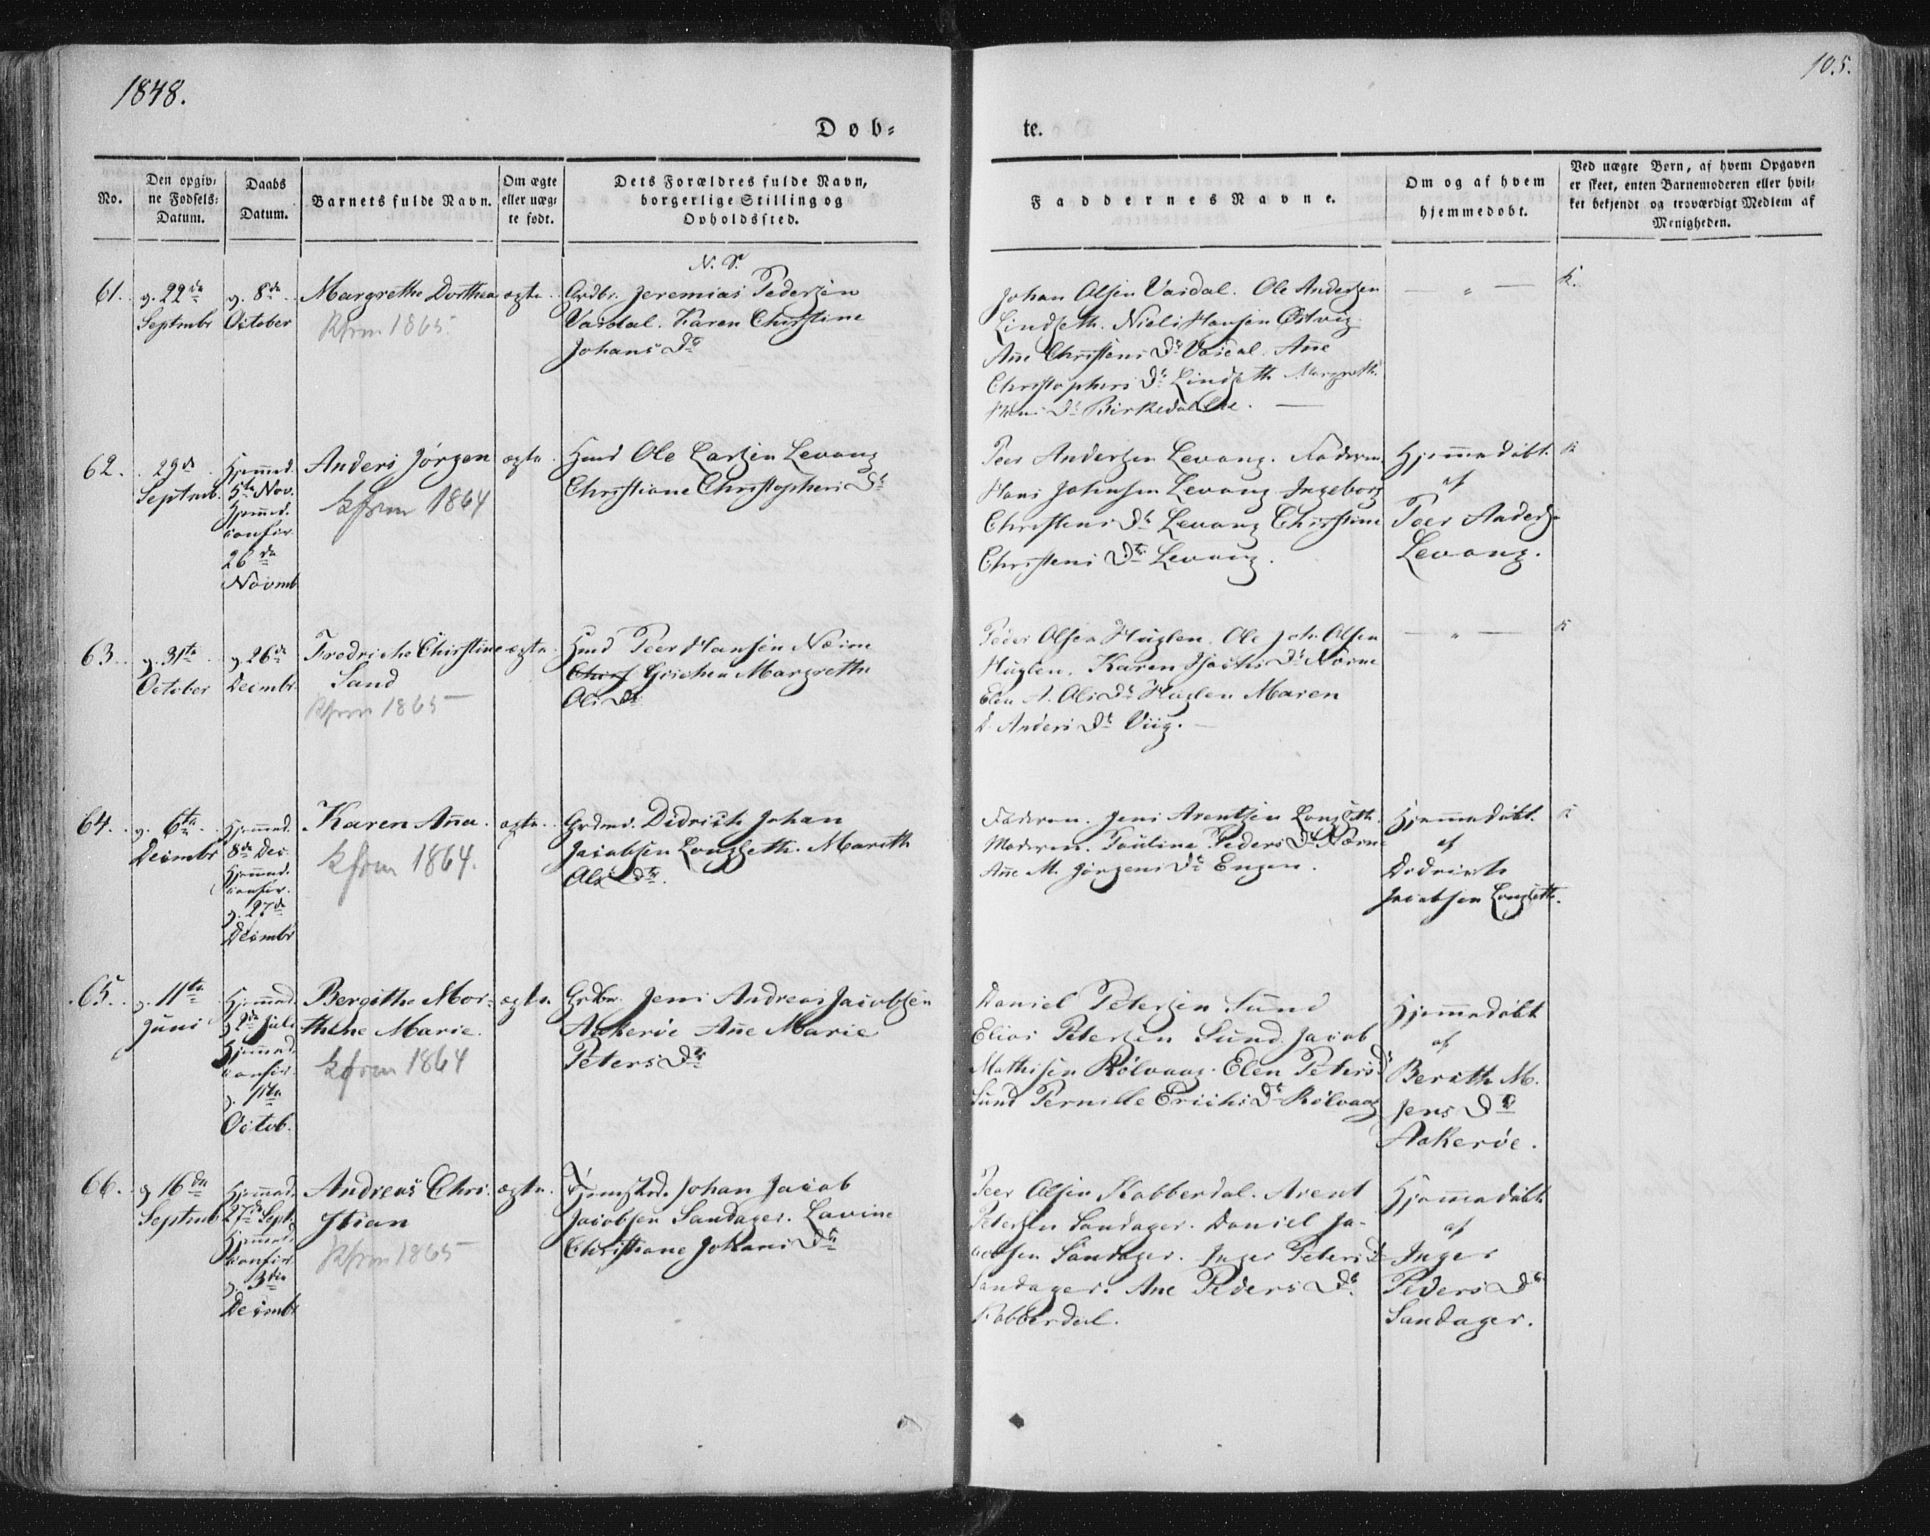 1848.
105.
Døb-
te.
No.
Den opgiv-
ne Fødsels-
Datum.
Daabs
Datum.
Barnets fulde Navn.
Om ægte
eller uæg-
te født.
Dets Forældres fulde Navn,
borgerlige Stilling og
Opholdssted.
Faddernes Navne.
Om og af hvem
hjemmedøbt.
Ved uægte Børn, af hvem Opgaven
er skeet, enten Barnemoderen eller hvil-
ket bekjendt og troværdigt Medlem af
Menigheden.
N. S.
61.
22de
Septmbr
8de
October
Margrethe Dorthea
Kfrm 1865
ægte
Grdbr. Jeremias Pedersen
Vasdal. Karen Christine
Johans Dr
Johan Olsen Vasdal. Ole Andersen
Lindseth. Niels Hansen Østvig
Ane Christens Dr Vasdal. Ane
Christophers Dr Lindseth Margreth
Dr Birkedal
62.
29de
Septmb.
Hjemmed.
5te Nov.
Hjemmed.
confir.
26de
Novmb
Anders Jørgen
Kfrm 1864
ægte
Hmd Ole Larsen Levang
Christiane Christophers Dr
Peer Andersen Levang. Faderen
Hans Johnsen Levang Ingeborg
Christens Dr Levang Christine
Christens Dr Levang.
Hjemmedøbt
af
Peer Anders.
Levang.
63.
31te
October
26de
Decmbr
Fredrikke Christine
Sand
Kfrm 1865
ægte
Hmd Peer Hansen Næsne
Grichen Margrethe
Ols Dr
Peder Olsen Huglen. Ole Joh. Olsen
Huglen. Karen Isachs Dr Næsne
Elen A. Ols Dr Huglen Maren
D. Anders Dr Viig.
64.
6te
Decmbr
Hjemmed.
8de Dec.
Hjemmed.
confir.
27de
Decmbr
Karen Ana
Kfrm 1864.
ægte
Grdmd. Didrich Johan
Jacobsen Langseth. Mareth
Ols Dr.
Faderen. Jens Arentsen Langseth
Moderen. Paulina Peders Dr Næsne
Ane M. Jørgens Dr Engen.
Hjemmedøbt
af
Didrich
Jacobsen Langseth.
65.
11te
Juni
Hjemmed.
2de Juli
Hjemmed.
confir.
Octob.
Bergithe Mor-
thene Marie.
Kfrm 1864
ægte
Grdbr. Jens Andreas Jacobsen
Aakerøe Ane Marie
Peters Dr
Daniel Petersen Sund
Elias Petersen Sund. Jacob
Mathisen Rølvaag. Elen Peters Dr
Sund Pernille Erichs Dr Rølvaag
Hjemmedøbt
af
Berith M.
Jens Dr
Aakerøe.
66.
16de
Septmb
Hjemmed.
27de Sept.
Hjemmed.
confir.
3die
Decmbr
Andreas Chri-
stian
Kfrm 1865
ægte
Johan Jacob
Jacobsen Sandager. Lavine
Christiane Johans Dr
Peer Olsen Kobberdal. Arent
Petersen Sandager. Daniel Ja-
cobsen Sandager. Inger Peters D
Sandager. Ane Peders Dr
Kobberdal.
Hjemmedøbt
af
Inger
Peders Dr
Sandager.